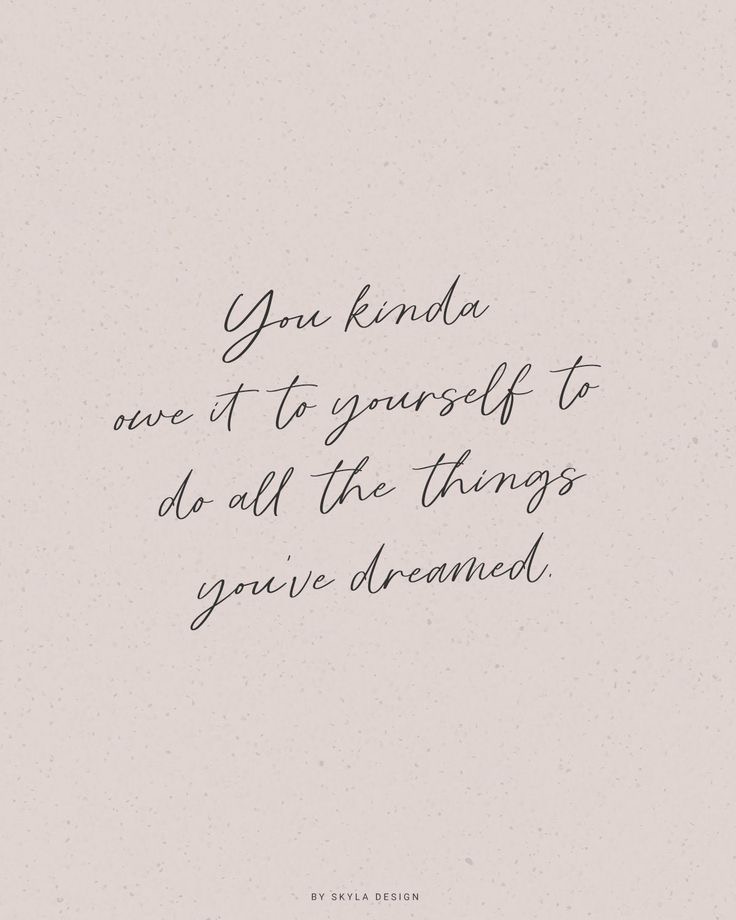 You kinda
owe it to yourself to
do all the things
you've dreamed.
BY SKYLA DESIGN